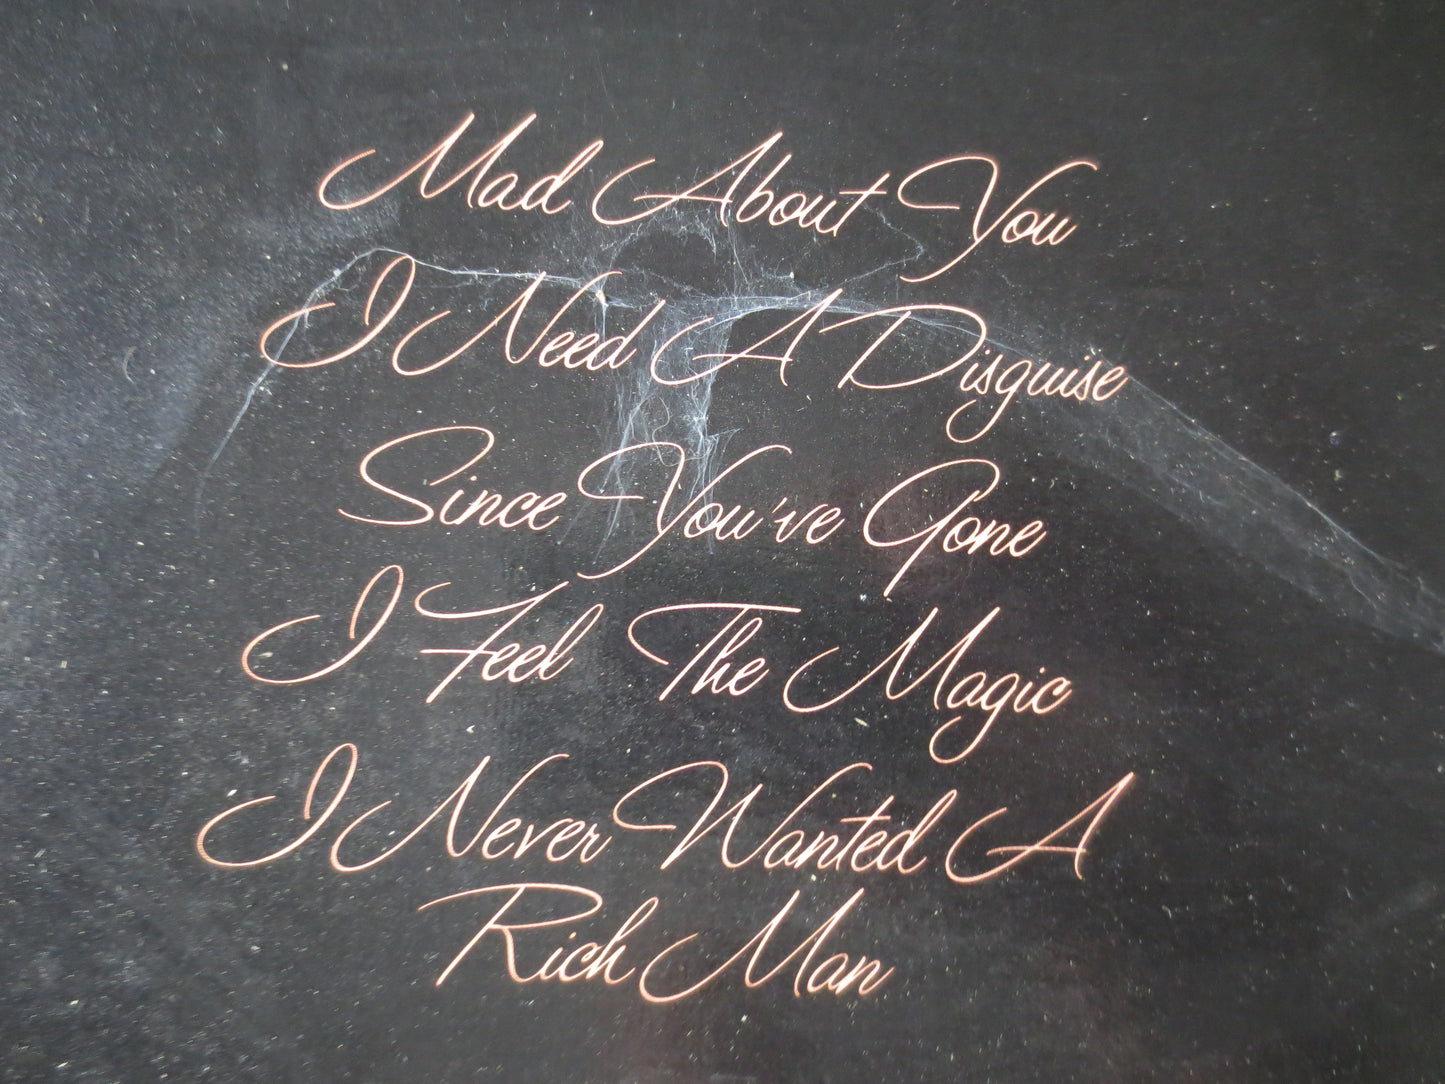 Mad About You
I Need A Disguise
Since You've Gone
I Feel The Magic
I Never Wanted A
Rich Man